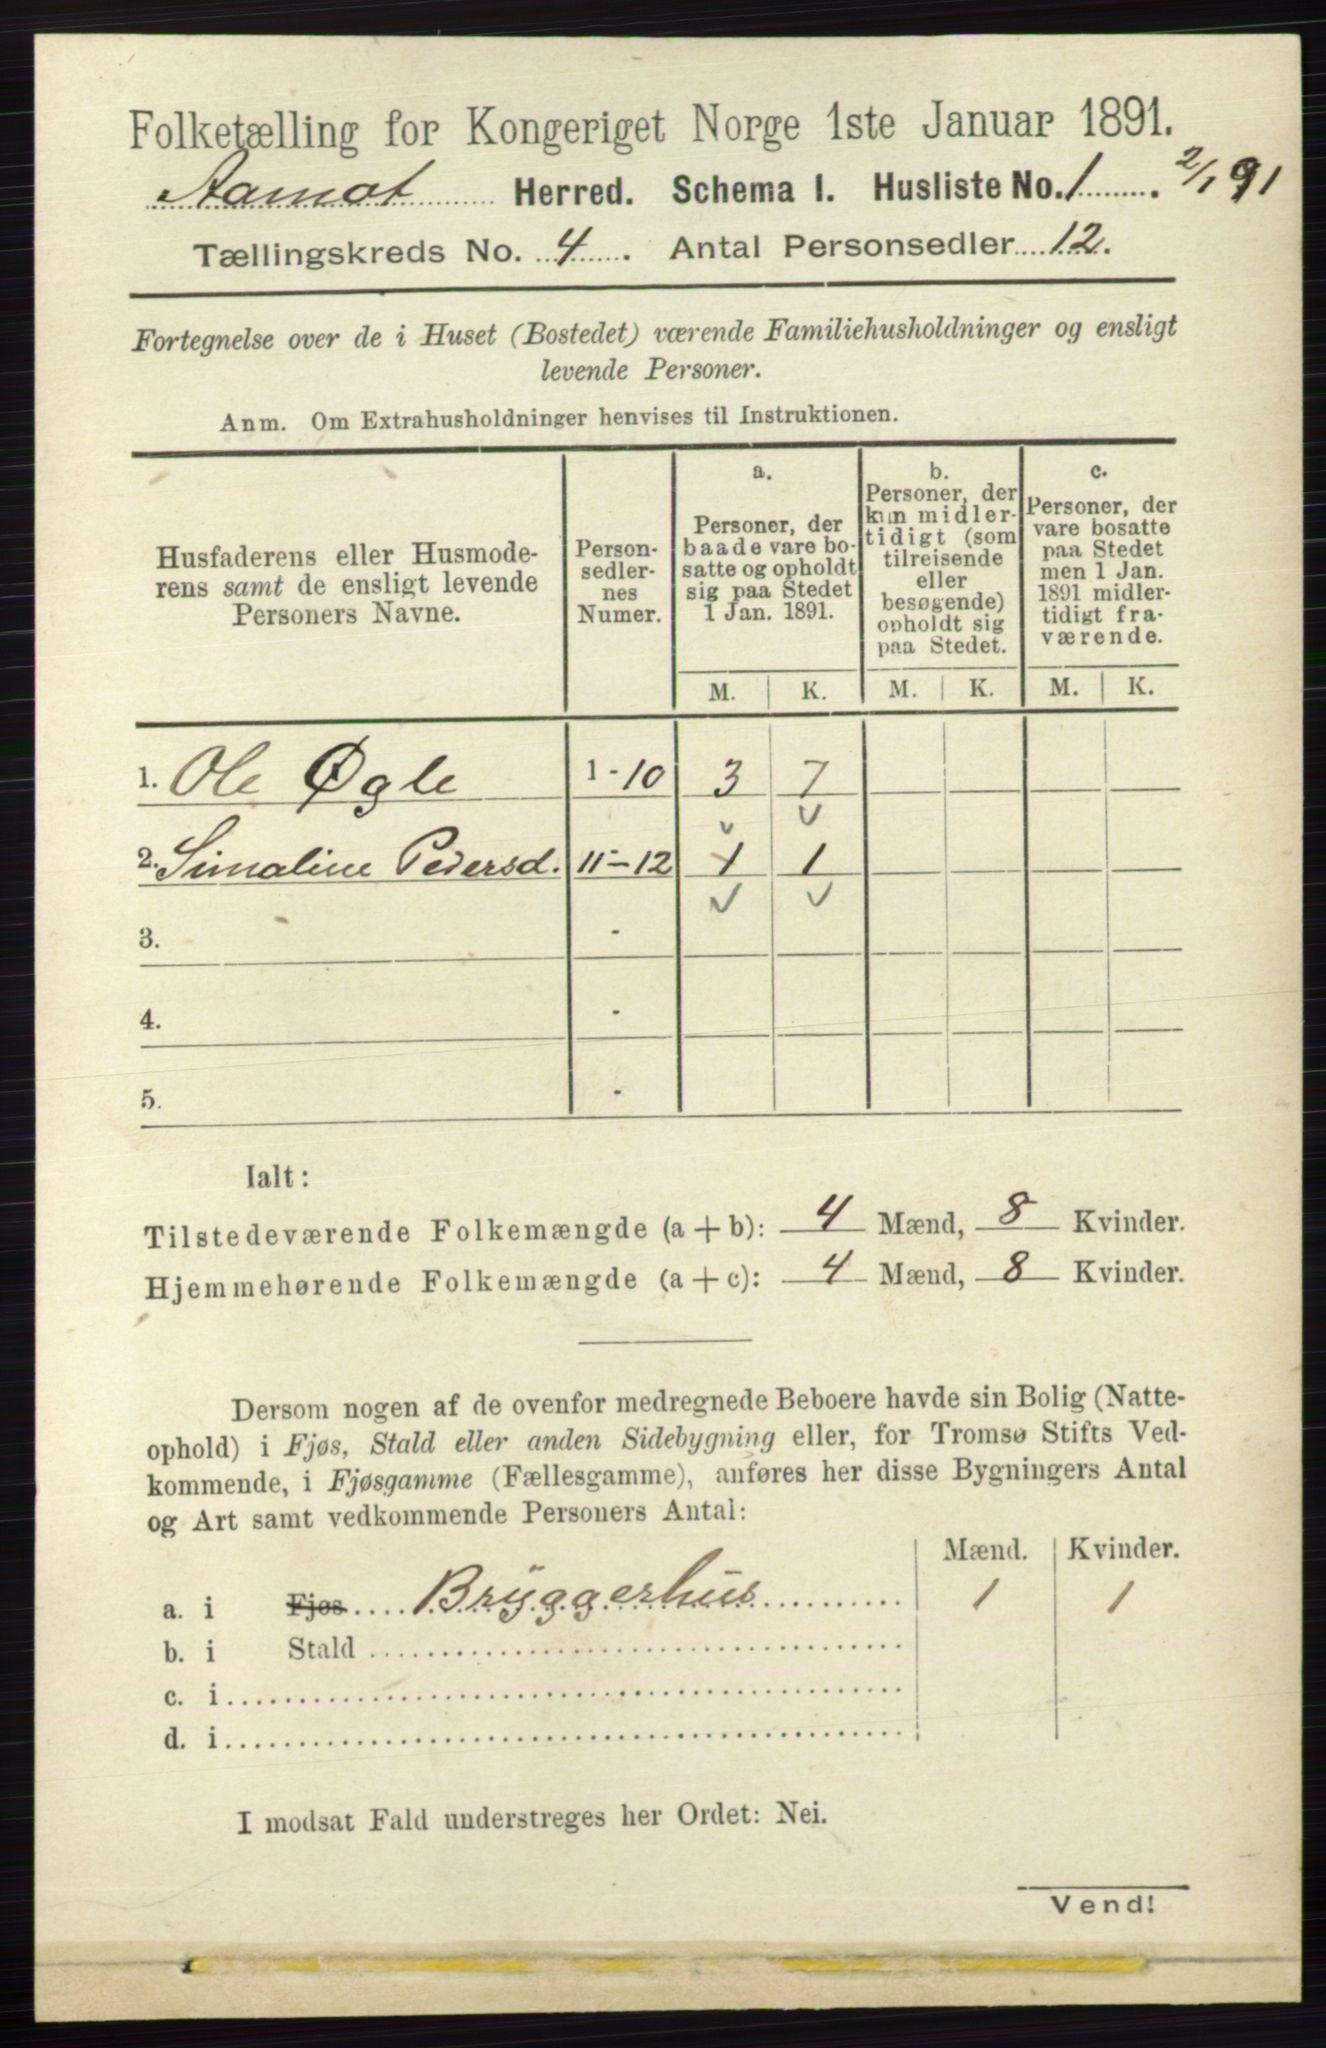 Folketælling for Kongeriget Norge 1ste Januar 1891.
Aamot Herred. Schema I. Husliste No. 1. 2/1 91
Tællingskreds No. 4. Antal Personsedler 12.
Fortegnelse over de i Huset (Bostedet) værende Familiehusholdninger og ensligt
levende Personer.
Anm. Om Extrahusholdninger henvises til Instruktionen.
Husfaderens eller Husmode-
rens samt de ensligt levende
Personers Navne.
Person-
sedler-
nes
Numer.
a.
Personer, der
baade vare bo-
satte og opholdt
sig paa Stedet
1 Jan. 1891.
b.
Personer, der
kun midler-
tidigt (som
tilreisende
eller
besøgende)
opholdt sig
paa Stedet.
c.
Personer, der
vare bosatte
paa Stedet
men 1 Jan.
1891 midler-
tidigt fra-
værende.
M. K. M. K. M. K.
1. Ole Øgle 1-10 3 7
2. Simaline Pedersd. 11-12 1 1
3. -
4. -
5. -
Ialt:
Tilstedeværende Folkemængde (a + b): 4 Mænd, 8 Kvinder.
Hjemmehørende Folkemængde (a + c): 4 Mænd, 8 Kvinder.
Dersom nogen af de ovenfor medregnede Beboere havde sin Bolig (Natte-
ophold) i Fjøs, Stald eller anden Sidebygning eller, for Tromsø Stifts Ved-
kommende, i Fjøsgamme (Fællesgamme), anføres her disse Bygningers Antal
og Art samt vedkommende Personers Antal:
Mænd. Kvinder.
a. i Fjøs Bryggerhus 1 1
b. i Stald
c. i
d. i
I modsat Fald understreges her Ordet: Nei.
Vend!